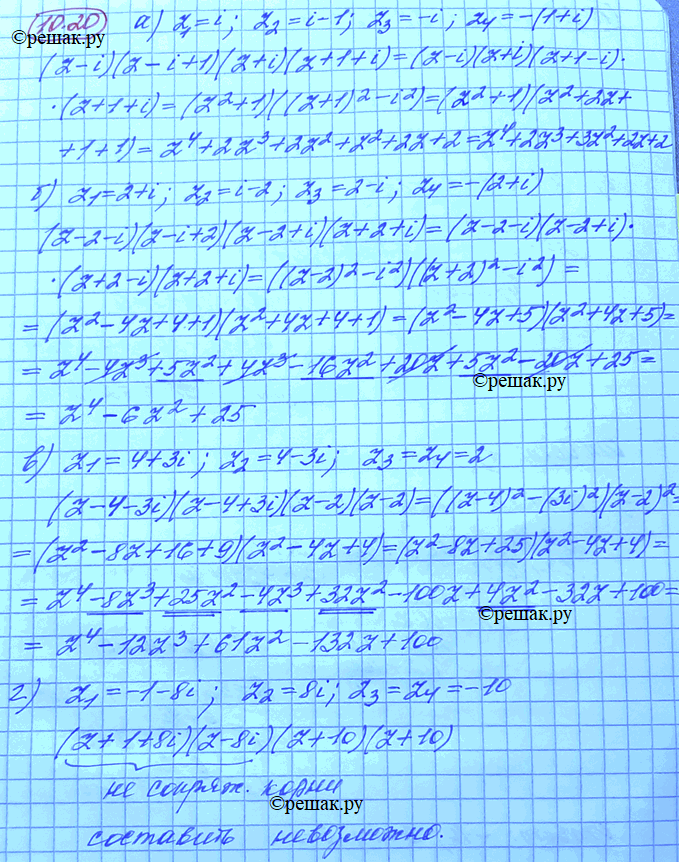 10.20 а) z₁=i; z₂=i-1; z₃=-i; z₄=-(1+i)
©решак.ру
(z-i)(z-i+1)(z+i)(z+1+i)=(z-i)(z+i)(z+1-i)·
·(z+1+i)=(z²+1)((z+1)²-i²)=(z²+1)(z²+2z+
+1+1)=z⁴+2z³+2z²+z²+2z+2=z⁴+2z³+3z²+2z+2
б) z₁=2+i; z₂=i-2; z₃=2-i; z₄=-(2+i)
(z-2-i)(z-i+2)(z-2+i)(z+2+i)=(z-2-i)(z-2+i)·
·(z+2-i)(z+2+i)=((z-2)²-i²)((z+2)²-i²)=
=(z²-4z+4+1)(z²+4z+4+1)=(z²-4z+5)(z²+4z+5)=
=z⁴-4z³+5z²+4z³-16z²+20z+5z²-20z+25=
©решак.ру
=z⁴-6z²+25
в) z₁=4+3i; z₂=4-3i; z₃=z₄=2
(z-4-3i)(z-4+3i)(z-2)(z-2)=((z-4)²-(3i)²)(z-2)²=
=(z²-8z+16+9)(z²-4z+4)=(z²-8z+25)(z²-4z+4)=
=z⁴-8z³+25z²-4z³+32z²-100z+4z²-32z+100=
©решак.ру
=z⁴-12z³+61z²-132z+100
г) z₁=-1-8i; z₂=8i; z₃=z₄=-10
(z+1+8i)(z-8i)(z+10)(z+10)
не сопряж. корни
©решак.ру
составить невозможно.